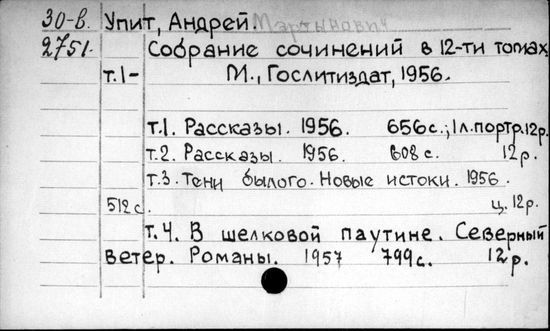 30-в. Упит, Андрей. Мартынович
2751. Собрание сочинений в 12-ти томах
т.1- М., Гослитиздат, 1956.
т.1. Рассказы. 1956. 656с.; 1л.портр. 12р.
т.2. Рассказы. 1956. 608 с. 12р.
т.3. Тени былого. Новые истоки. 1956.
512 с. ц. 12р.
т.4. В шелковой паутине. Северный
ветер. Романы. 1957 799с. 12р.